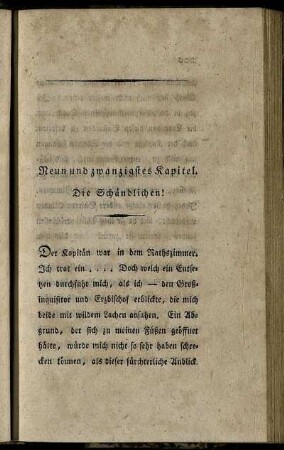 Neun und zwanzigstes Kapitel.
Die Schändlichen!
Der Kapitän war in dem Rathszimmer.
Ich trat ein . . . . Doch welch ein Entse-
tzen durchfuhr mich, als ich — den Groß-
inquisitor und Erzbischof erblickte, die mich
beide mit wildem Lachen ansahen. Ein Ab-
grund, der sich zu meinen Füßen geöffnet
hätte, würde mich nicht so sehr haben schre-
cken können, als dieser fürchterliche Anblick.